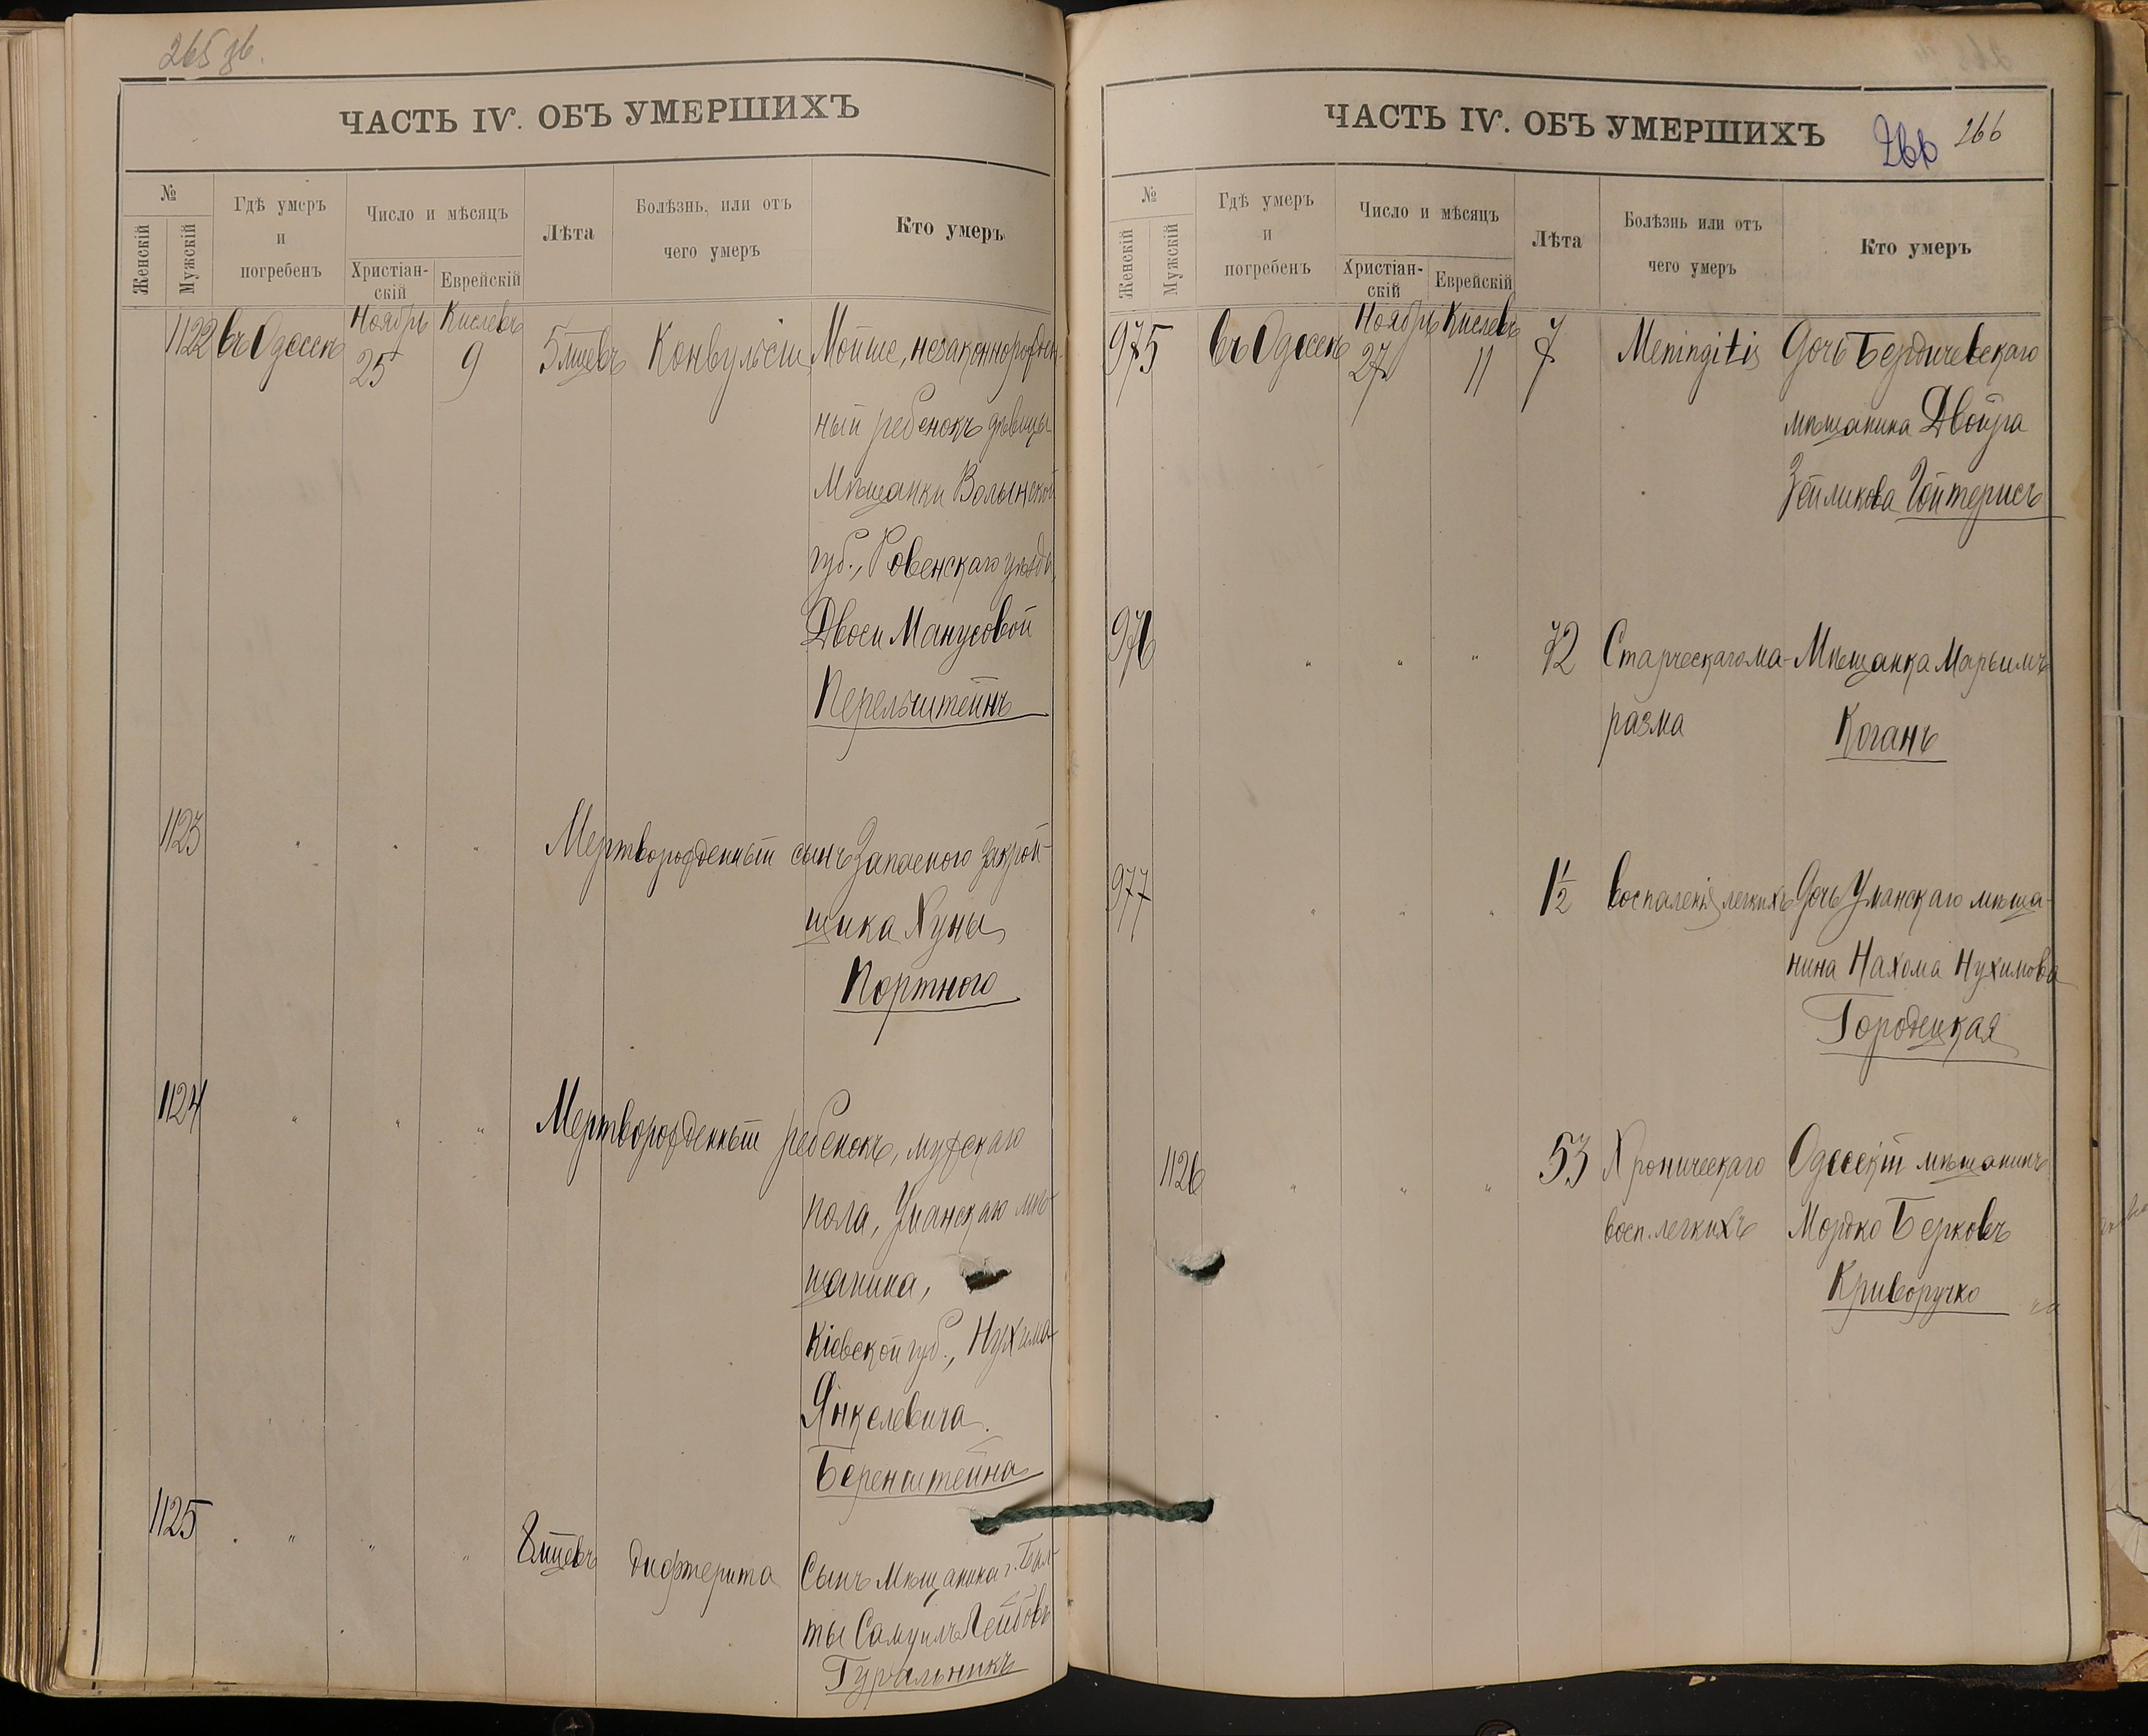 265 зв.
ЧАСТЬ IV. ОБЪ УМЕРШИХЪ
№
Женскій
Мужскій
Гдѣ умеръ
и
погребенъ
Число и мѣсяцъ
Христіан-
скій
Еврейскій
Лѣта
Болѣзнь, или отъ
чего умеръ
Кто умеръ
Ноябрь Кислевъ
1122 въ Одессѣ 25 9 5 мцевъ Конвульсіи Мойше, незаконнорожден-
ный ребенокъ дѣвицы
Мѣщанки Волынской
губ., Ровенскаго уѣзда,
Двоси Манусовой
Перельштейнъ
1123 " " " Мертворожденный сынъ Запасного закрой-
щика Хуны
Портного
1124 " " " Мертворожденный ребенокъ, мужскаго
пола, Уманскаго мѣ-
щанина,
Кіевской губ., Нухима
Янкелевича
Беренштейна
1125 " " " 8 мцевъ дифтерита Сынъ Мѣщанина г. Бал-
ты Самуилъ Лейбовъ
Гуральникъ
ЧАСТЬ IV. ОБЪ УМЕРШИХЪ
266 266
№
Женскій
Мужскій
Гдѣ умеръ
и
погребенъ
Число и мѣсяцъ
Христіан-
скій
Еврейскій
Лѣта
Болѣзнь или отъ
чего умеръ
Кто умеръ
Ноябрь Кислевъ
975 въ Одессѣ 27 11 7 Meningitis Дочь Бердичевскаго
мѣщанина Двойра
Зейликова Гойтерисъ
976 " " " 72 Старческаго ма- Мѣщанка Марьимъ
разма Коганъ
977 " " " 1½ воспаленія легкихъ Дочь Уманскаго мѣща-
нина Нахома Нухимова
Городецкая
1126 " " " 53 Хроническаго Одесскій мѣщанинъ
восп. легкихъ Мордко Берковъ
Криворучко